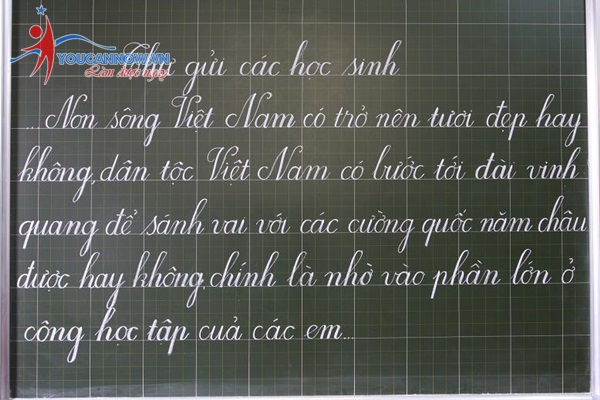 YOUCANNOW.VN
Làm được ngay
Thư gửi các học sinh
...Non sông Việt Nam có trở nên tươi đẹp hay
không, dân tộc Việt Nam có bước tới đài vinh
quang để sánh vai với các cường quốc năm châu
được hay không, chính là nhờ vào phần lớn ở
công học tập của các em...